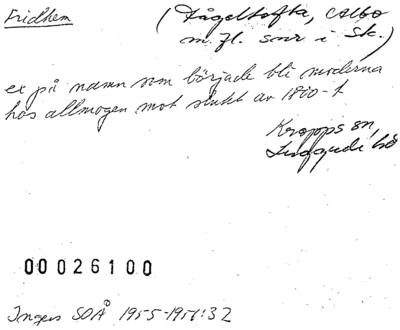 Fridhem (Fågeltofta, Albo
m.fl. snr i Sk.)
ex på namn som började bli moderna
hos allmogen mot slutet av 1800-t
Kropps sn,
Luggude hd
00026100
Ingers SOÅ 1955-1957:32